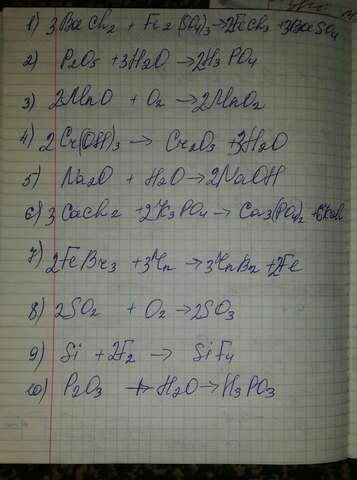 1) 3BaCl₂ + Fe₂(SO₄)₃→2FeCl₃+3BaSO₄
2) P₂O₅ +3H₂O →2H₃PO₄
3) 2MnO + O₂ → 2MnO₂
4) 2Cr(OH)₃ → Cr₂O₃ +3H₂O
5) Na₂O + H₂O→2NaOH
6) 3CaCl₂ +2K₃PO₄→ Ca₃(PO₄)₂ +6KCl
7) 2FeBr₃ +3Zn →3ZnBr₂ +2Fe
8) 2SO₂ + O₂ →2SO₃
9) Si +2F₂ → SiF₄
10) P₂O₃ + H₂O→H₃PO₃